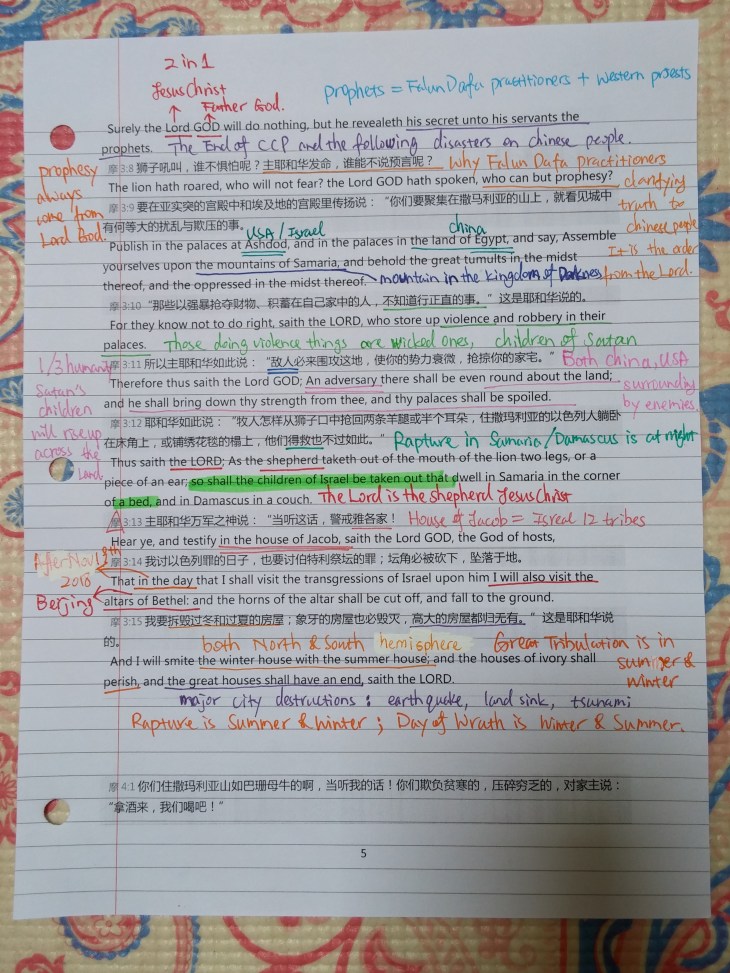 2 in 1
Jesus Christ
Father God.
prophets = Falun Dafa practitioners + western priests
Surely the Lord GOD will do nothing, but he revealeth his secret unto his servants the
prophets. The End of CCP and the following disasters on chinese people.
摩 3:8 狮子吼叫，谁不惧怕呢？主耶和华发命，谁能不说预言呢？ Why Falun Dafa practitioners
The lion hath roared, who will not fear? the Lord GOD hath spoken, who can but prophesy? clarifying
prophesy
always
come from
Lord God.
truth to
chinese people
It is the order
from the Lord.
摩 3:9 要在亚实突的宫殿中和埃及地的宫殿里传扬说：“你们要聚集在撒马利亚的山上，就看见城中
有何等大的扰乱与欺压的事。”
USA / Israel
china
Publish in the palaces at Ashdod, and in the palaces in the land of Egypt, and say, Assemble
yourselves upon the mountains of Samaria, and behold the great tumults in the midst
thereof, and the oppressed in the midst thereof. mountain in the kingdom of Darkness
摩 3:10 “那些以强暴抢夺财物、积蓄在自己家中的人，不知道行正直的事。”这是耶和华说的。
For they know not to do right, saith the LORD, who store up violence and robbery in their
palaces. Those doing violence things are wicked ones, children of Satan
1/3 humanity
Satan's
children
will rise up
across the
Land
摩 3:11 所以主耶和华如此说：“敌人必来围攻这地，使你的势力衰微，抢掠你的家宅。” Both china, USA
Therefore thus saith the Lord GOD; An adversary there shall be even round about the land; surrounded
and he shall bring down thy strength from thee, and thy palaces shall be spoiled. by enemies.
摩 3:12 耶和华如此说：“牧人怎样从狮子口中抢回两条羊腿或半个耳朵，住撒马利亚的以色列人躺卧
在床角上，或铺绣花毯的榻上，他们得救也不过如此。” Rapture in Samaria/Damascus is at night
Thus saith the LORD; As the shepherd taketh out of the mouth of the lion two legs, or a
piece of an ear; so shall the children of Israel be taken out that dwell in Samaria in the corner
of a bed, and in Damascus in a couch. The Lord is the shepherd Jesus Christ
摩 3:13 主耶和华万军之神说：“当听这话，警戒雅各家！ House of Jacob = Isreal 12 tribes
Hear ye, and testify in the house of Jacob, saith the Lord GOD, the God of hosts,
After Nov 18th
2018
摩 3:14 我讨以色列罪的日子，也要讨伯特利祭坛的罪；坛角必被砍下，坠落于地。
That in the day that I shall visit the transgressions of Israel upon him I will also visit the
Beijing
altars of Bethel: and the horns of the altar shall be cut off, and fall to the ground.
摩 3:15 我要拆毁过冬和过夏的房屋；象牙的房屋也必毁灭，高大的房屋都归无有。”这是耶和华说
的。
both North & South hemisphere
Great Tribulation is in
summer &
winter
And I will smite the winter house with the summer house; and the houses of ivory shall
perish, and the great houses shall have an end, saith the LORD.
major city destructions : earthquake, land sink, tsunami
Rapture is Summer & winter ; Day of Wrath is Winter & Summer.
摩 4:1 你们住撒马利亚山如巴珊母牛的啊，当听我的话！你们欺负贫寒的，压碎穷乏的，对家主说：
“拿酒来，我们喝吧！”
5